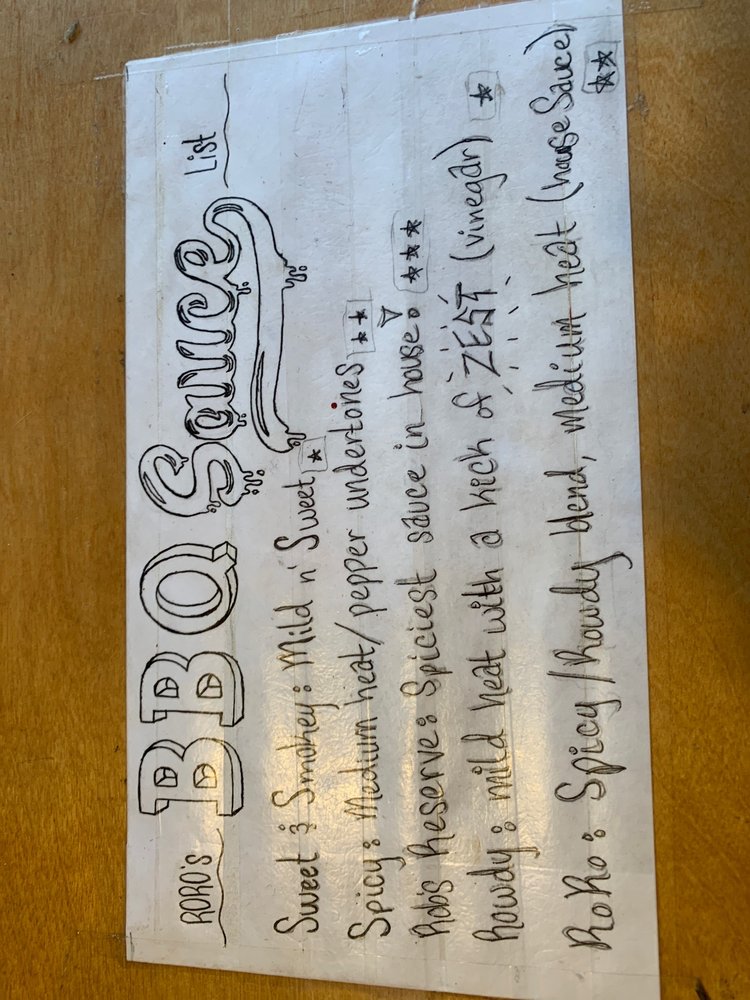 RORO'S BBQ Sauce List
Sweet & Smokey: Mild n' Sweet ★
Spicy: Medium heat/pepper undertones ★★
Rob's Reserve: Spiciest sauce in house! ★★★
Rowdy: mild heat with a kick of ZEST (vinegar) ★
RoRo: Spicy/Rowdy blend, medium heat (house Sauce) ★★